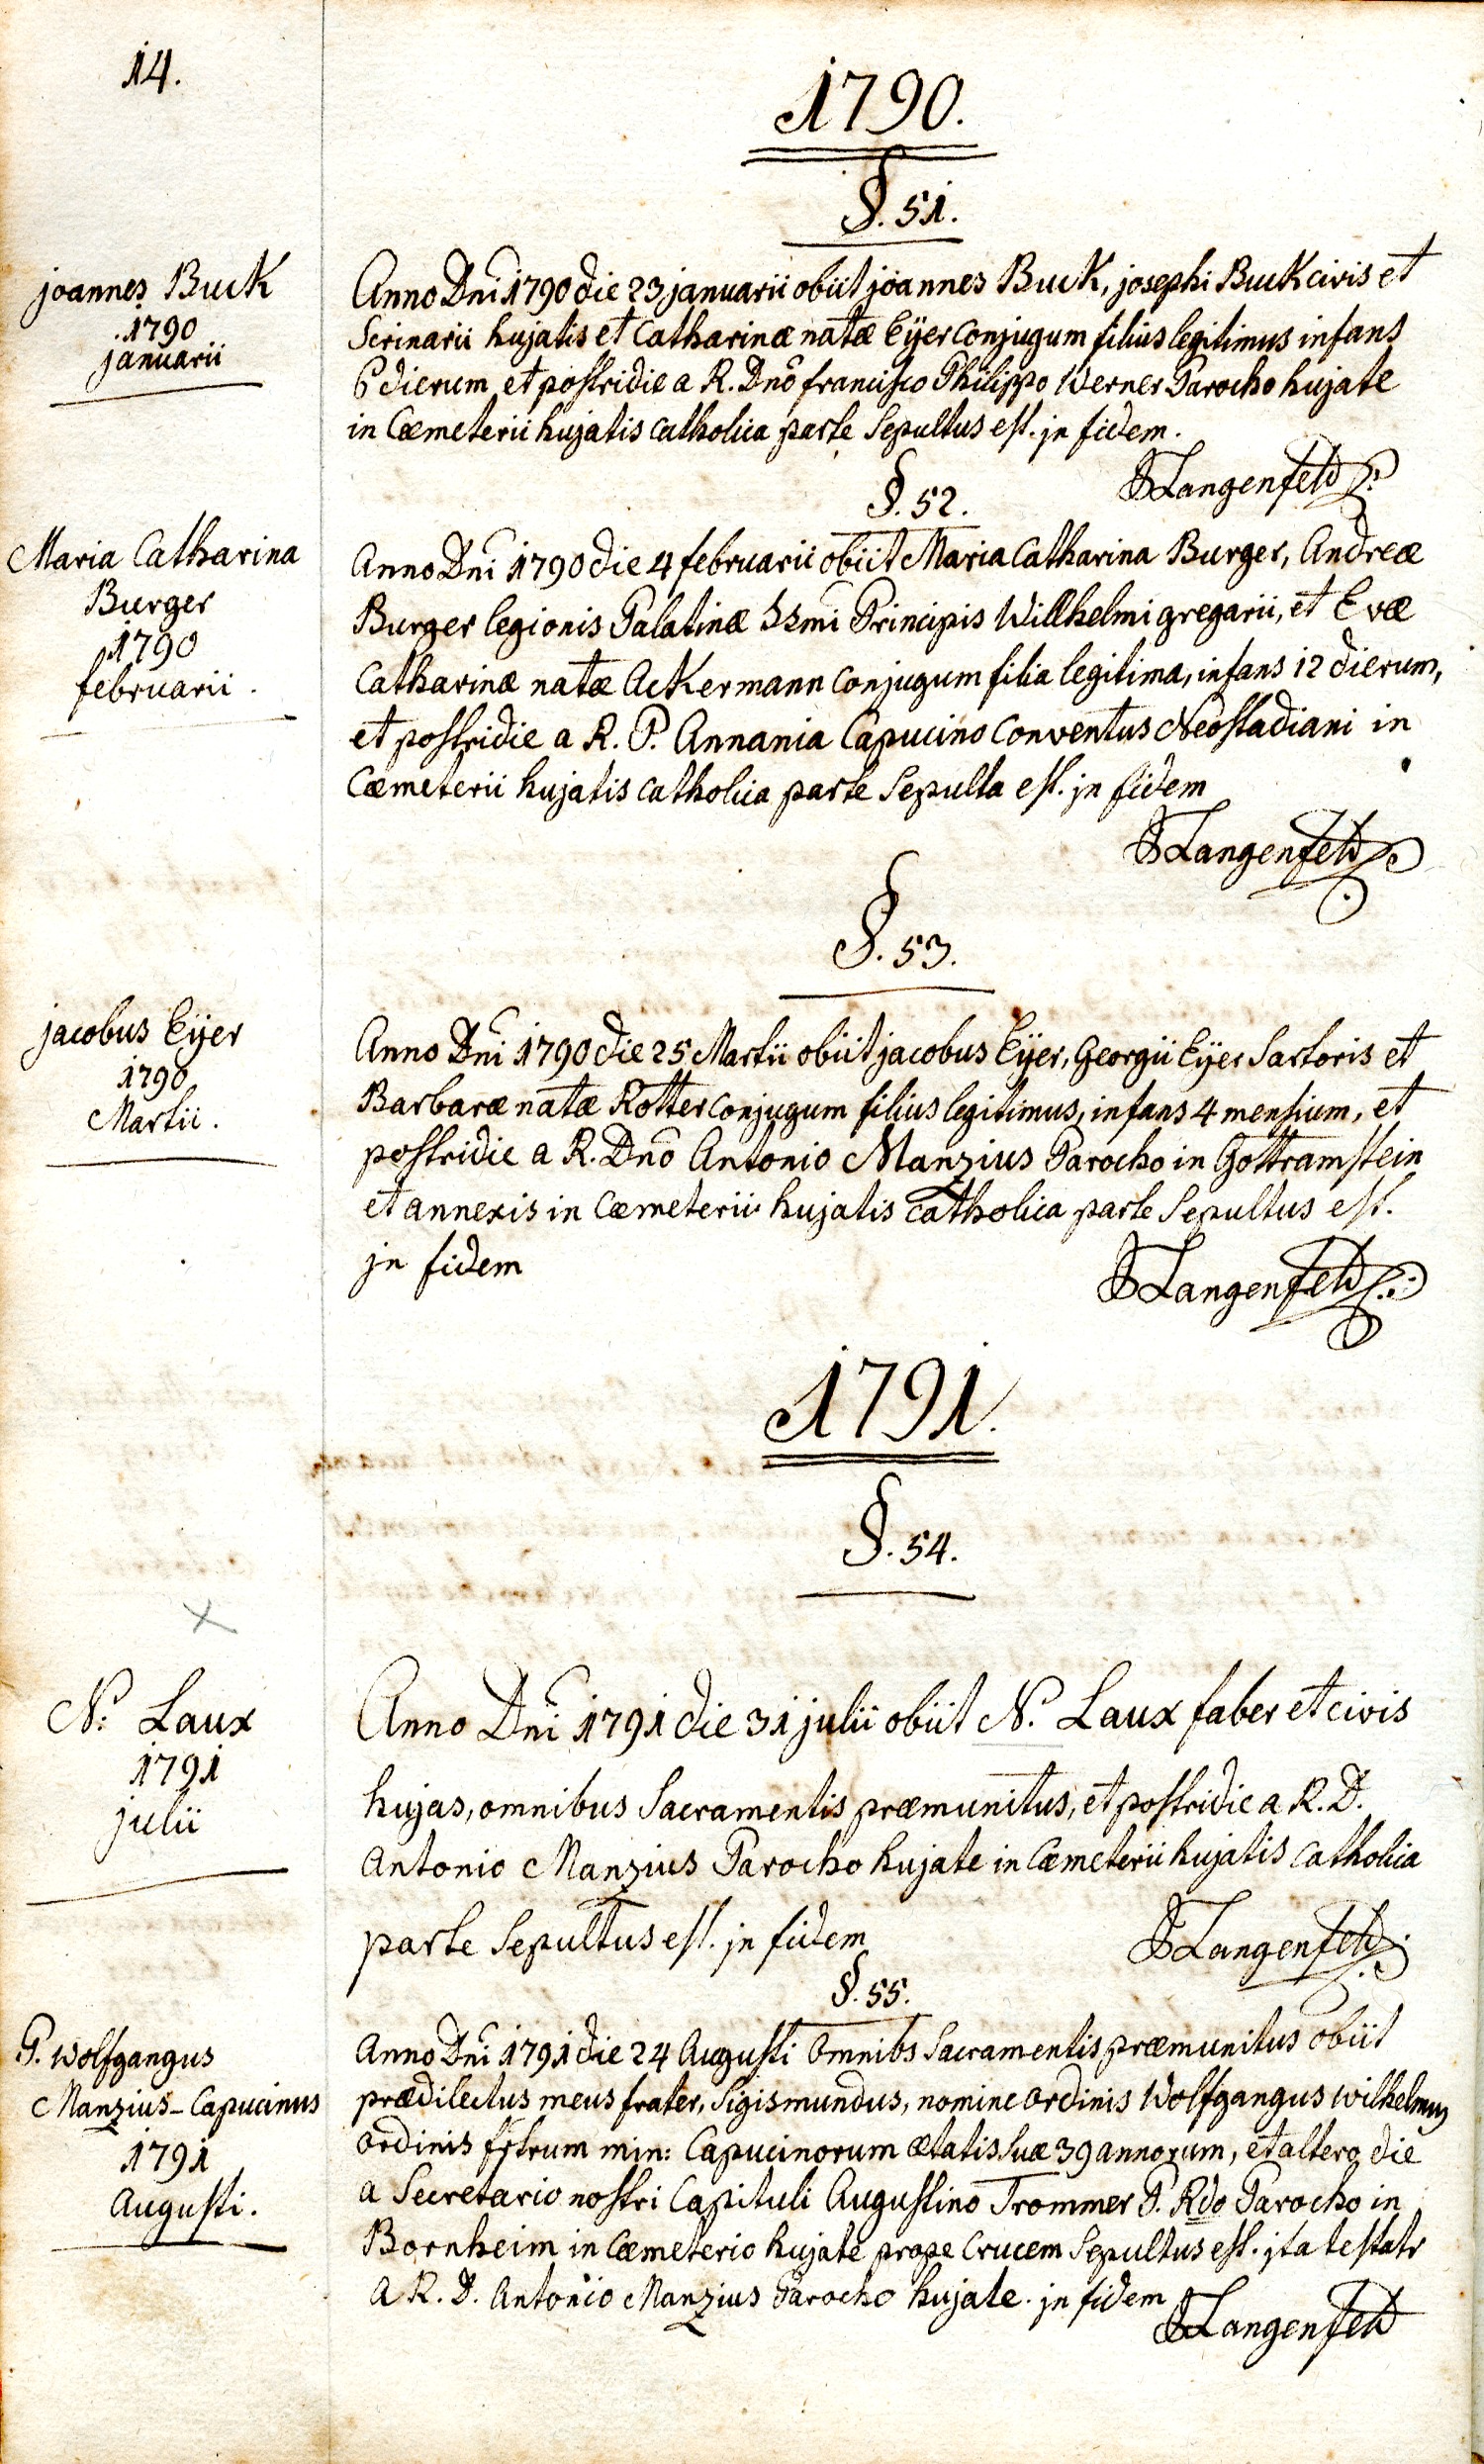 14.
1790.
§. 51.
joannes Buck
1790
januarii
Anno Dni 1790 die 23 januarii obiit joannes Buck, josephi Buck civis et
Scrinarii hujatis et Catharinæ natæ Eÿer conjugum filius legitimus infans
6 dierum et postridie a R. Dno francisco Philippo Werner Parocho hujate
in Cæmeterii hujatis catholica parte Sepultus est. jn fidem.
Langenfeld
§. 52.
Maria Catharina
Burger
1790
februarii.
Anno Dni 1790 die 4 februarii obiit Maria Catharina Burger, Andreæ
Burger legionis Palatinæ Ssmi Principis Willhelmi gregarii, et Evæ
Catharinæ natæ Ackermann conjugum filia legitima, infans 12 dierum,
et postridie a R. P. Annania Capucino Conventus Neostadiani in
Cæmeterii hujatis catholica parte Sepulta est. jn fidem
Langenfeld
§. 53.
jacobus Eÿer
1790
Martii.
Anno Dni 1790 die 25 Martii obiit jacobus Eÿer, Georgii Eÿer Sartoris et
Barbaræ natæ Rotter conjugum filius legitimus, infans 4 mensium, et
postridie a R. Dno Antonio Manzius Parocho in Gottramstein
et annexis in Cæmeterii hujatis catholica parte Sepultus est.
jn fidem
Langenfeld
1791.
§. 54.
N. Laux
1791
julii
Anno Dni 1791 die 31 julii obiit N. Laux faber et civis
hujas, omnibus Sacramentis præmunitus, et postridie a R. D.
Antonio Manzius Parocho hujate in Cæmeterii hujatis catholica
parte Sepultus est. jn fidem
Langenfeld
§. 55.
P. Wolfgangus
Manzius - Capucinus
1791
Augusti.
Anno Dni 1791 die 24 Augusti Omnibs Sacramentis præmunitus obiit
prædilectus meus frater, Sigismundus, nomine ordinis Wolfgangus Wilhelmus
ordinis frtrum min: Capucinorum ætatis suæ 39 annorum, et altero die
a Secretario nostri Capituli Augustino Trommer P. Rdo Parocho in
Bornheim in Cæmeterio hujate prope Crucem Sepultus est. jta testatr
a R. D. Antonio Manzius Parocho hujate. jn fidem
Langenfeld